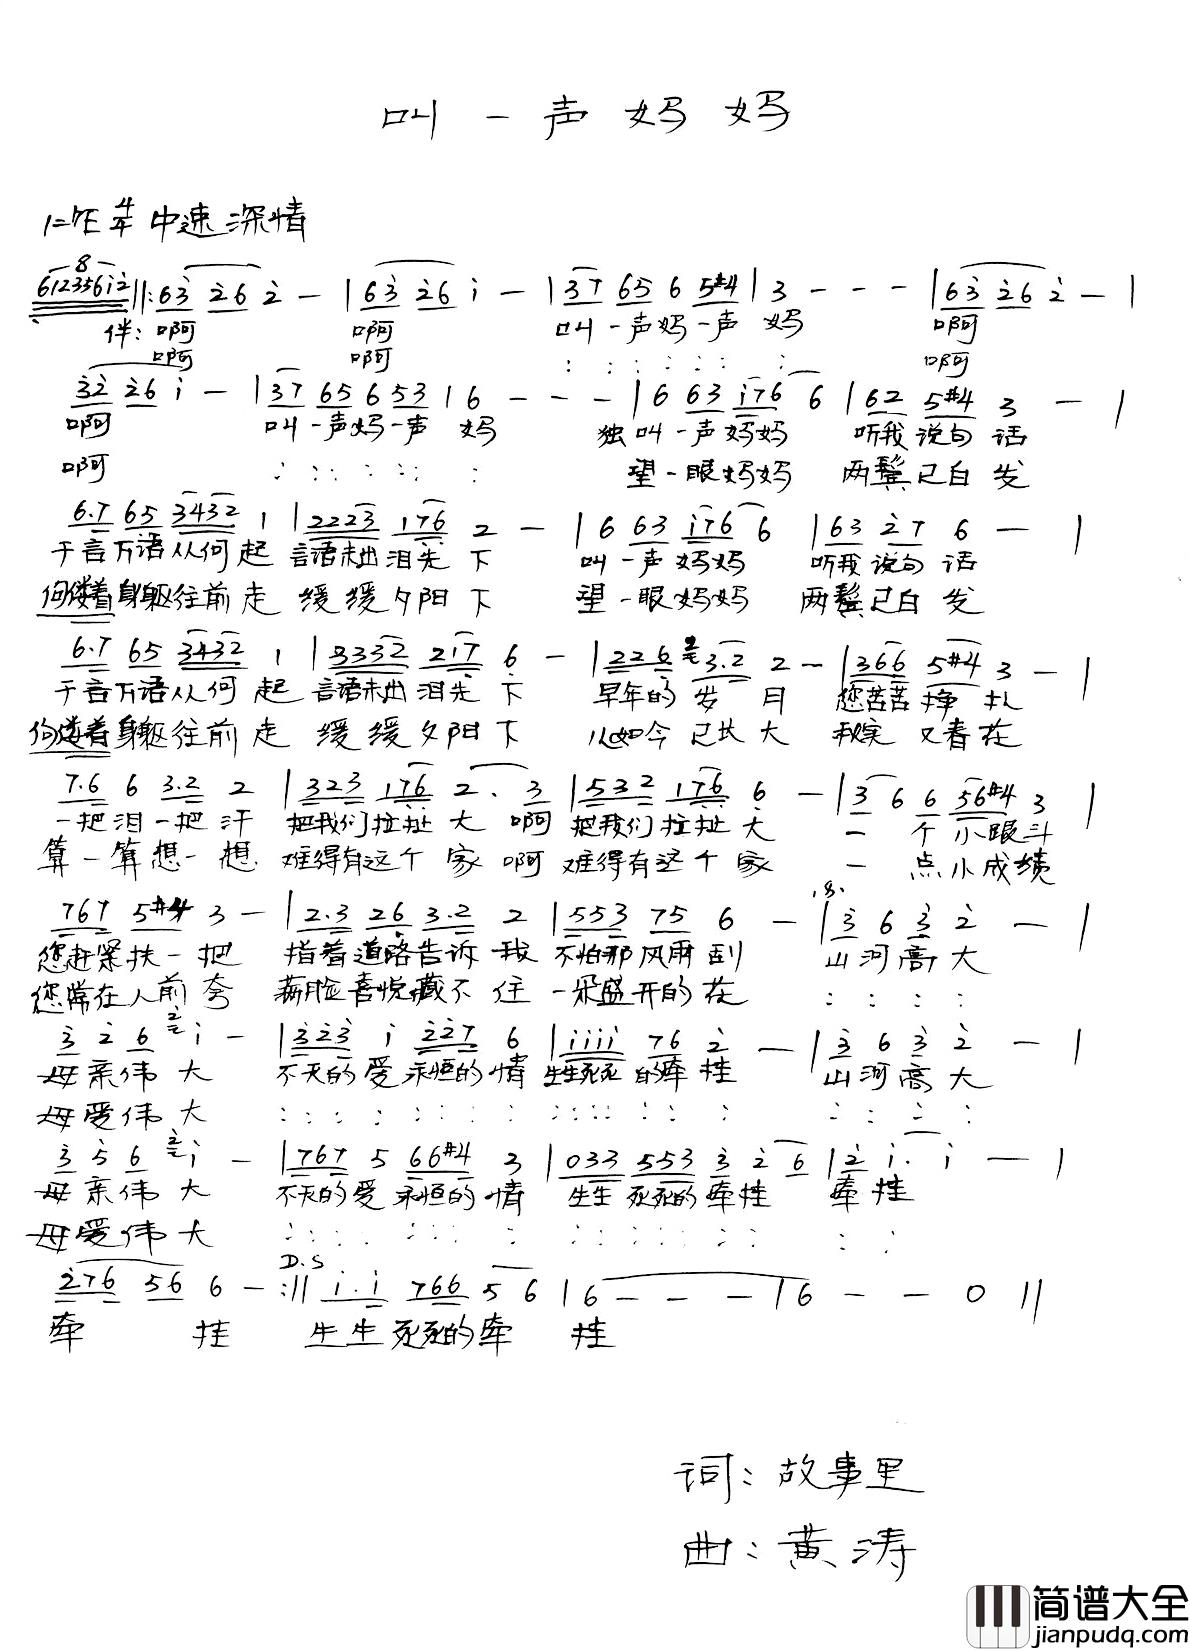 叫一声妈妈
1=♭E 4/4 中速 深情
8
612356i2 ||: 63 26 2 - | 63 26 i - | 37 65 6 5#4 | 3 - - - | 63 26 2 - |
伴: 啊 啊 叫一声妈一声 妈 啊
啊 啊 : : : : : : 啊
32 26 i - | 37 65 6 53 | 6 - - - | 6 63 i76 6 | 62 5#4 3 - |
啊 叫一声妈一声 妈 独叫一声妈妈 听我说句话
啊 : : : : : : 望一眼妈妈 两鬓已白发
6.7 65 3432 1 | 2223 176 2 - | 6 63 i76 6 | 63 27 6 - |
千言万语从何起 言语未出泪先下 叫一声妈妈 听我说句话
佝偻着身躯往前走 缓缓夕阳下 望一眼妈妈 两鬓已白发
6.7 65 3432 1 | 3332 217 6 - | 226 3.2 2 - | 366 5#4 3 - |
千言万语从何起 言语未出泪先下 早年的岁月 您苦苦挣扎
佝偻着身躯往前走 缓缓夕阳下 从如今已长大 我实又春在
7.6 6 3.2 2 | 323 176 2. 3 | 532 176 6 - | 3 6 6 56#4 3 |
一把泪一把汗 把我们拉扯大 啊 把我们拉扯大 一个小跟斗
算一算想一想 难得有这个家 啊 难得有这个家 一点小成绩
767 5#4 3 - | 2.3 26 3.2 2 | 553 75 6 - | 3 6 3 2 - |
您赶紧扶一把 指着道路告诉我 不怕那风雨刮 山河高大
您常在人前夸 满脸喜悦藏不住 一朵盛开的花 : : : :
3 2 6 i - | 323 i 227 6 | iiii 76 2 - | 3 6 3 2 - |
母亲伟大 不夭的爱永恒的情 生生死死的牵挂 山河高大
母爱伟大 : : : : : : : : : : : : : : : : : : :
3 5 6 i - | 767 5 66#4 3 | 033 553 3 2 6 | 2 i. i - |
母亲伟大 不夭的爱永恒的情 生生死死的牵挂 牵挂
母爱伟大 : : : : : : : : : : : : : : : : :
D.S
276 56 6 - :|| i.i 766 5 6 | 6 - - - | 6 - - 0 ||
牵 挂 生生死死的牵 挂
词: 故事里
曲: 黄涛
简谱大全
jianpudq.com